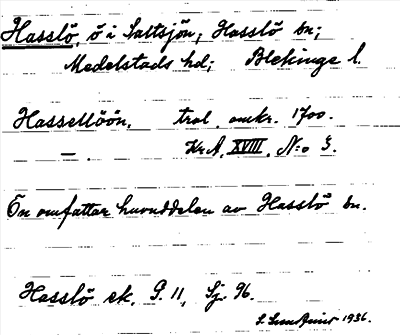 Hasslö, ö i Saltsjön; Hasslö sn;
Medelstads hd; Blekinge l.
Hasselöön, trol. omkr. 1700.
— . Kr.A. XVIII, N:o 3.
Ön omfattar huvuddelen av Hasslö sn.
Hasslö ek. G. 11, Sj. 96.
1936.